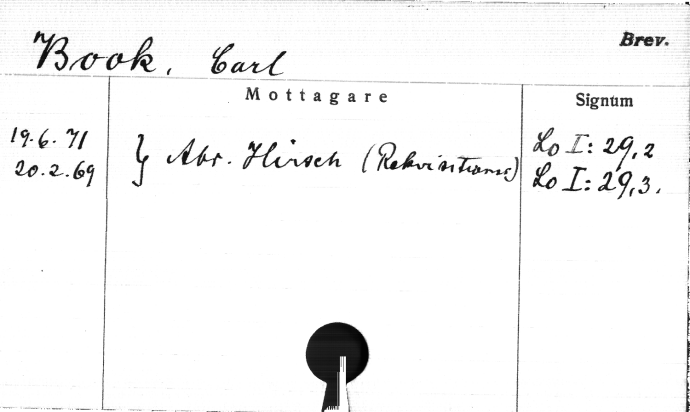 Brev.
Book, Carl
Mottagare
Signum
19.6.71
20.2.69
} Abr. Hirsch (Rekvisitioner)
Lo I: 29,2
Lo I: 29,3.